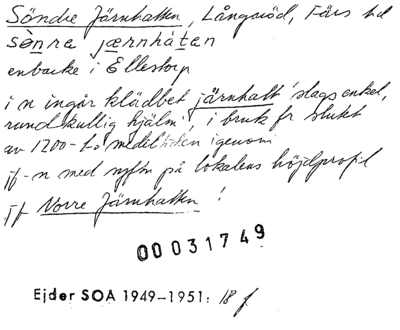 Söndre Järnhatten, Långaröd, Färs hd
sønra jærnhatan
enbacke i Ellestorp
i n ingår klädbet järnhatt 'slags enkel,
rundkullig hjälm', i bruk fr slutet
av 1200-t o medeltiden igenom
jf-n med syftn på lokalens höjdprofil
jf Norre Järnhatten!
00031749
Ejder SOA 1949–1951: 18 f